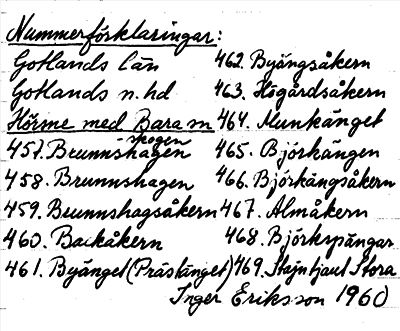 Nummerförklaringar:
Gotlands län
Gotlands n. hd
Hörsne med Bara sn
457. Brunnshagen
skogen
458. Brunnshagen
459. Brunnshagsåkern
460. Backåkern
461. Byänget (Prästänget)
462. Byängsåkern
463. Högårdsåkern
464. Munkänget
465. Björkängen
466. Björkängsåkern
467. Almåkern
468. Björkspängar
469. Stora
Inger Eriksson 1960